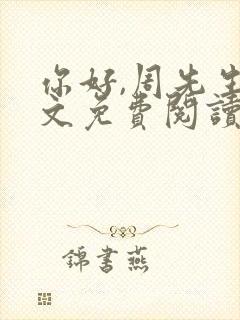 你好,周先生
文免費閱讀
錦書燕